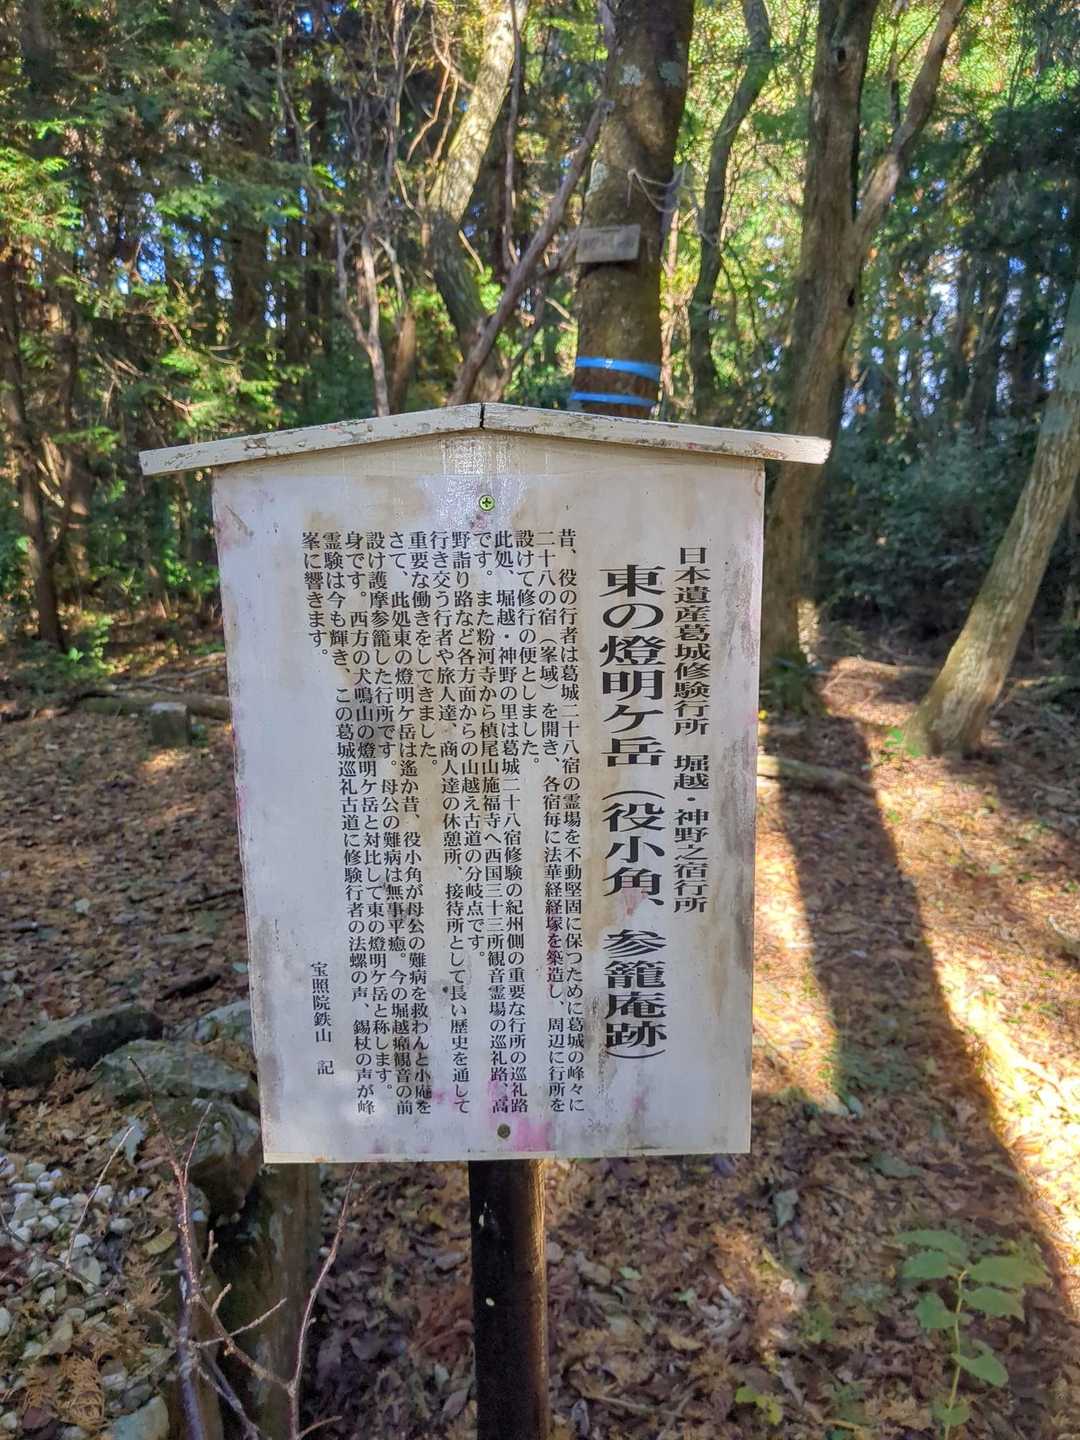 日本遺産葛城修験行所　堀越・神野之宿行所
東の燈明ケ岳（役小角、参籠庵跡）
昔、役の行者は葛城二十八宿の霊場を不動堅固に保つために葛城の峰々に
二十八の宿（峯城）を開き、各宿毎に法華経経塚を築造し、周辺に行所を
設けて修行の便としました。
此処、堀越・神野の里は葛城二十八宿修験の紀州側の重要な行所の巡礼路
です。また粉河寺から槙尾山施福寺へ西国三十三所観音霊場の巡礼路、高
野詣り路など各方面からの山越え古道の分岐点です。
行き交う行者や旅人達、商人達の休憩所、接待所として長い歴史を通して
重要な働きをしてきました。
さて、此処東の燈明ケ岳は遙か昔、役小角が母公の難病を救わんと小庵を
設け護摩参籠した行所です。母公の難病は無事平癒。今の堀越癪観音の前
身です。西方の犬鳴山の燈明ケ岳と対比して東の燈明ケ岳と称します。
霊験は今も輝き、この葛城巡礼古道に修験行者の法螺の声、錫杖の声が峰
峯に響きます。
宝照院鉄山　記